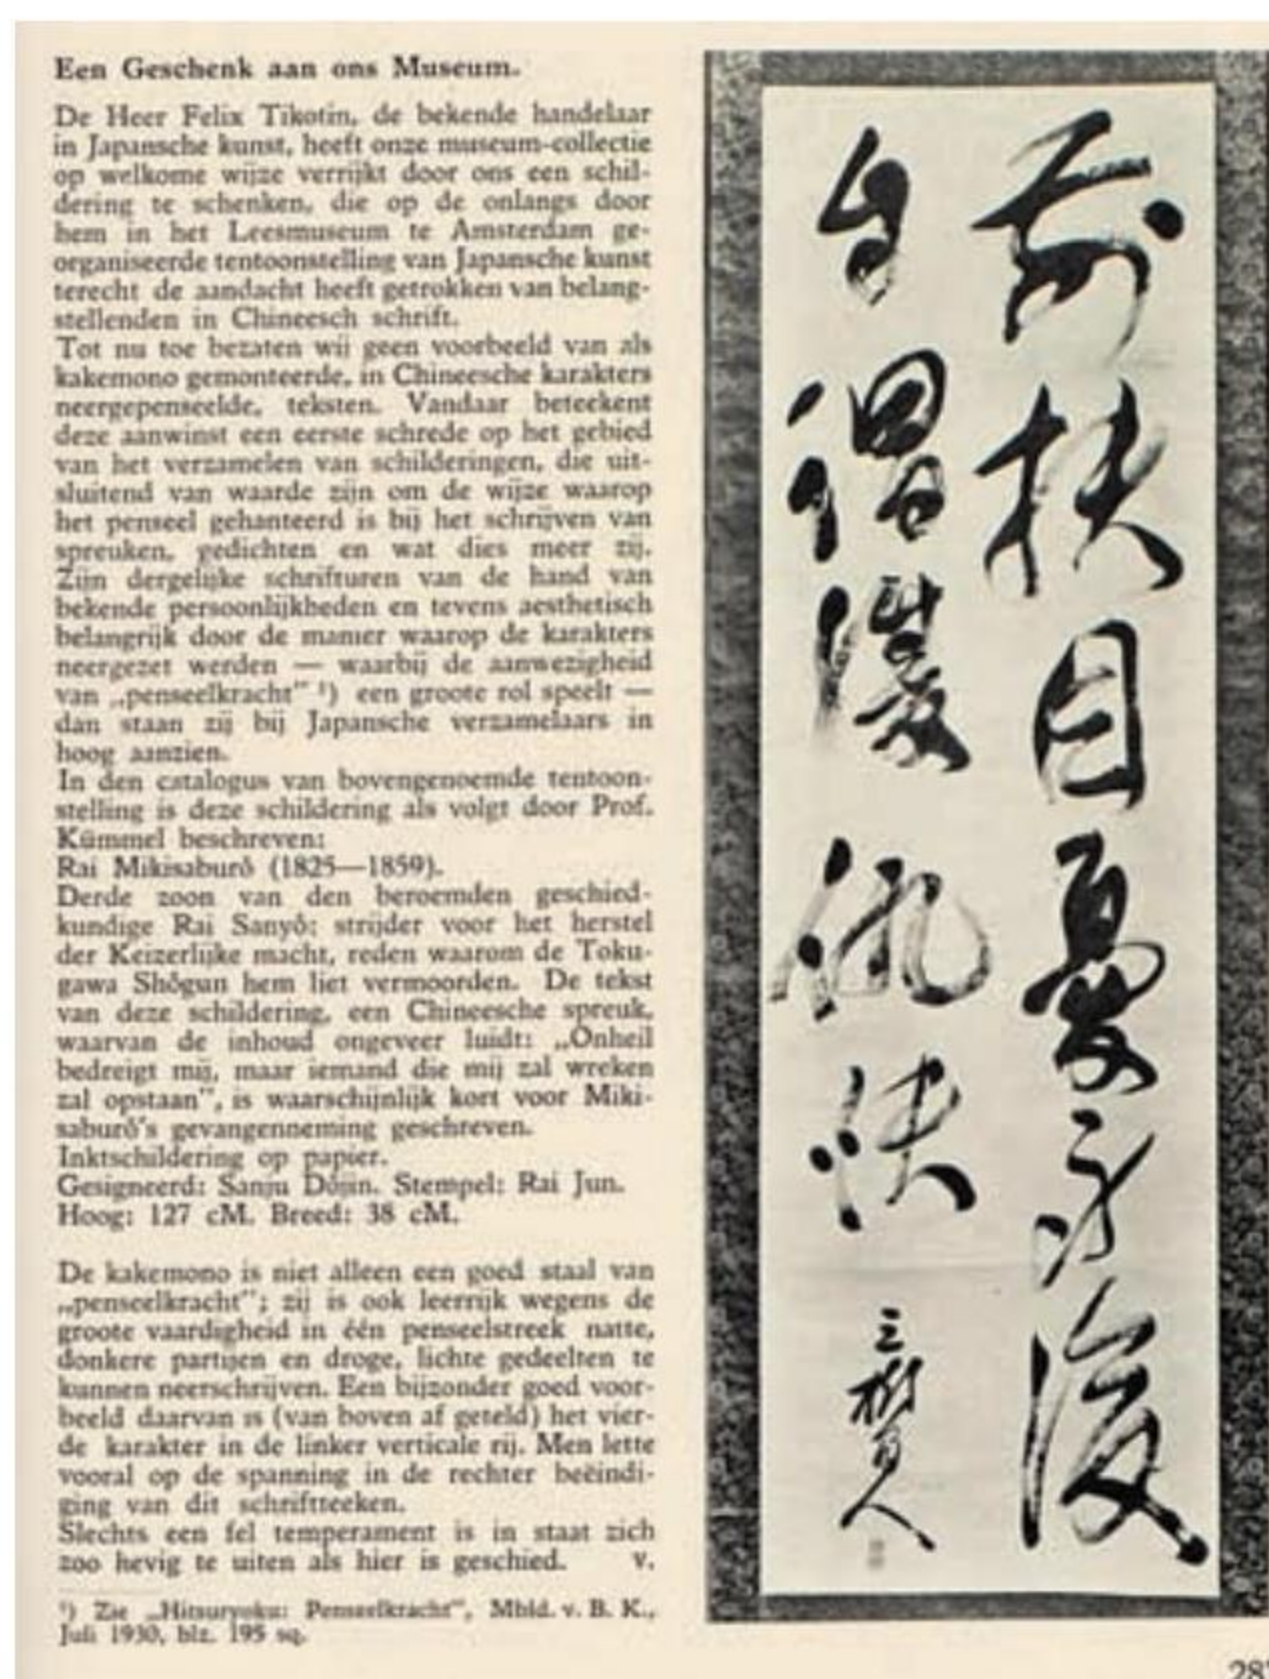 Een Geschenk aan ons Museum.
De Heer Felix Tikotin, de bekende handelaar
in Japansche kunst, heeft onze museum-collectie
op welkome wijze verrijkt door ons een schil-
dering te schenken, die op de onlangs door
hem in het Leesmuseum te Amsterdam ge-
organiseerde tentoonstelling van Japansche kunst
terecht de aandacht heeft getrokken van belang-
stellenden in Chineesch schrift.
Tot nu toe bezaten wij geen voorbeeld van als
kakemono gemonteerde, in Chineesche karakters
neergepenseelde, teksten. Vandaar beteekent
deze aanwinst een eerste schrede op het gebied
van het verzamelen van schilderingen, die uit-
sluitend van waarde zijn om de wijze waarop
het penseel gehanteerd is bij het schrijven van
spreuken, gedichten en wat dies meer zij.
Zijn dergelijke schrifturen van de hand van
bekende persoonlijkheden en tevens aesthetisch
belangrijk door de manier waarop de karakters
neergezet werden — waarbij de aanwezigheid
van „penseelkracht" ¹) een groote rol speelt —
dan staan zij bij Japansche verzamelaars in
hoog aanzien.
In den catalogus van bovengenoemde tentoon-
stelling is deze schildering als volgt door Prof.
Kümmel beschreven:
Rai Mikisaburô (1825—1859).
Derde zoon van den beroemden geschied-
kundige Rai Sanyô; strijder voor het herstel
der Keizerlijke macht, reden waarom de Toku-
gawa Shôgun hem liet vermoorden. De tekst
van deze schildering, een Chineesche spreuk,
waarvan de inhoud ongeveer luidt: „Onheil
bedreigt mij, maar iemand die mij zal wreken
zal opstaan", is waarschijnlijk kort voor Miki-
saburô's gevangenneming geschreven.
Inktschildering op papier.
Gesigneerd: Sanju Dôjin. Stempel: Rai Jun.
Hoog: 127 cM. Breed: 38 cM.
De kakemono is niet alleen een goed staal van
„penseelkracht"; zij is ook leerrijk wegens de
groote vaardigheid in één penseelstreek natte,
donkere partijen en droge, lichte gedeelten te
kunnen neerschrijven. Een bijzonder goed voor-
beeld daarvan is (van boven af geteld) het vier-
de karakter in de linker verticale rij. Men lette
vooral op de spanning in de rechter beëindi-
ging van dit schriftteeken.
Slechts een fel temperament is in staat zich
zoo hevig te uiten als hier is geschied. v.
¹) Zie „Hitsuryoku: Penseelkracht", Mbld. v. B. K.,
Juli 1930, blz. 195 sq.
目憂
後
三樹
人